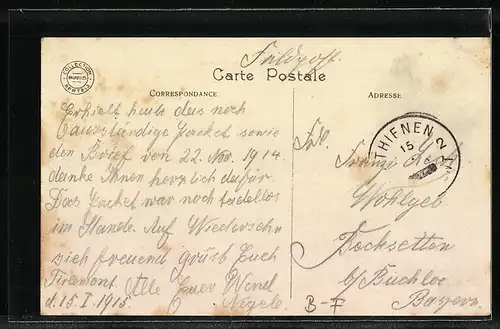 Feldpost.
Carte Postale
CORRESPONDANCE
ADRESSE
COLLECTION
BERTELS
Erhielt heute das noch
ausständige Packet sowie
den Brief von 22. Nov. 1914.
danke Ihnen herzlich dafür.
Das Packet war noch tadellos
im Stande. Auf Wiedersehn
sich freuend grüßt Euch
Tirlemont. Alle Euer Wend.
d. 15. I. 1915. Negele.
THIENEN 2
15
Frl.
Wohlgeb
b/ Buchloe
Bayern
B-F